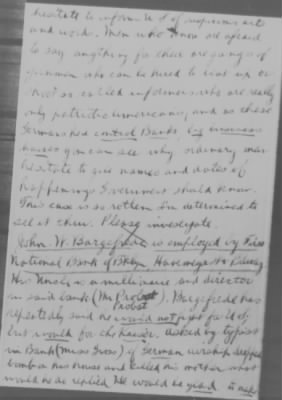 hesitate to inform U.S. of suspicious acts
and words. Men who know are afraid
to say anything for there are gangs of
gunmen who can be hired to beat up or
shoot so called informers who are really
only patriotic americans, and as these
Germans
control Banks, big
houses you can see why ordinary men
hesitate to give names and dates of
happenings Government should know.
This case is so rotten I'm determined to
see it thru. Please investigate.
John W. Bargfrede is employed by First
National Bank of Bklyn, Havemeyer St & Bdway
His Uncle is a millionaire and director
in said bank (Mr Probst
Probst). Bargfrede has
repeatedly said he would not fight for U.S.
but would for the Kaiser. Asked by typist
in Bank (Miss Gross) if German airship dropped
bomb on his house and killed his mother what
would he do replied he would be glad to